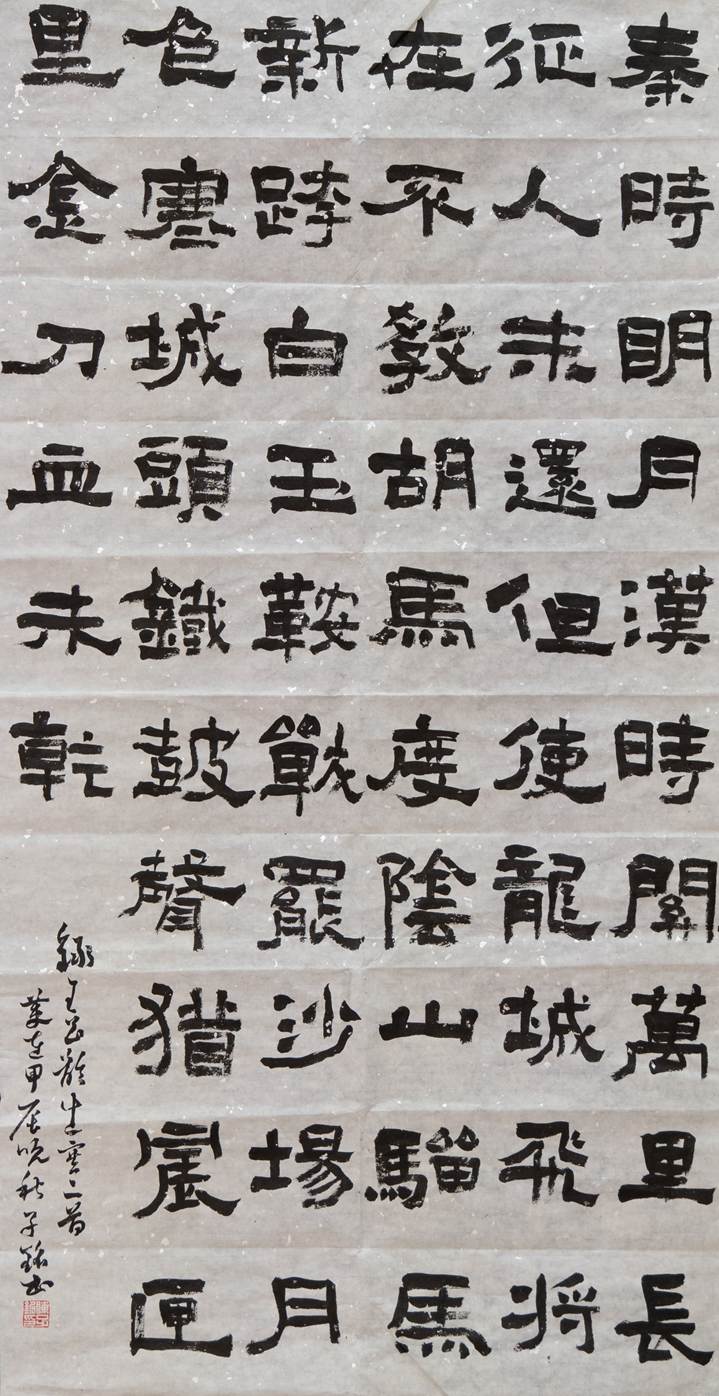 秦時明月漢時關萬里長
征人未還但使龍城飛將
在不教胡馬度陰山騮馬
新跨白玉鞍戰罷沙場月
色寒城頭鐵鼓聲猶震匣
里金刀血未乾
錄王昌齡出塞二首
歲在甲辰晚秋子銘书